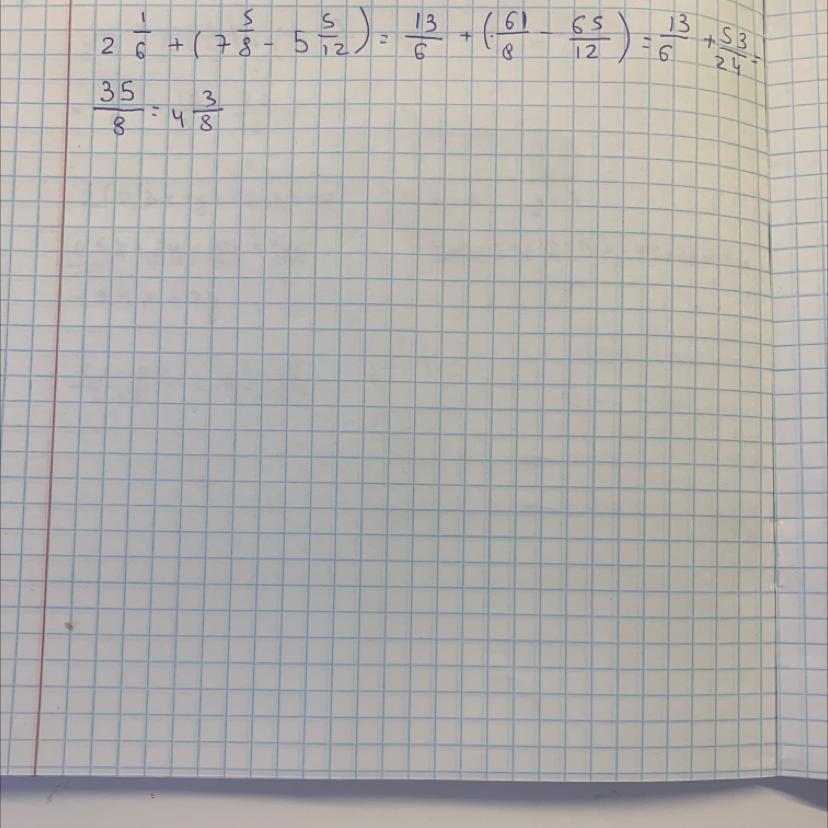 2 1/6 + (7 5/8 - 5 5/12) = 13/6 + (61/8 - 65/12) = 13/6 + 53/24 =
35/8 = 4 3/8